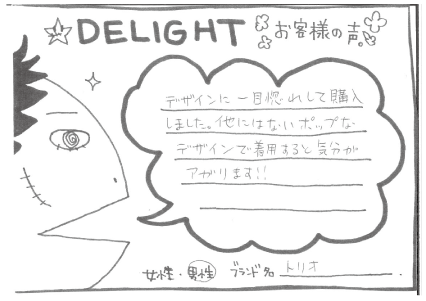 DELIGHT お客様の声。
デザインに一目惚れして購入
しました。他にはないポップな
デザインで着用すると気分が
アガります!!
女性・男性 ブランド名 トリオ